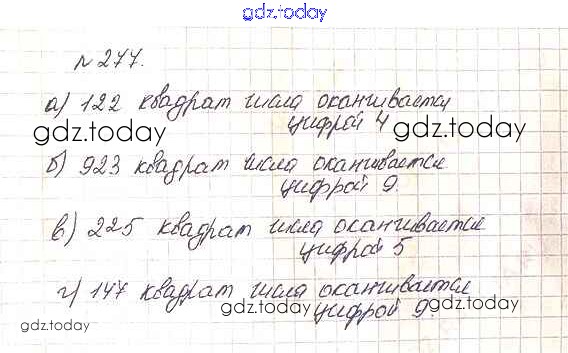 gdz.today
№ 277.
а) 122 квадрат числа оканчивается
цифрой 4
gdz.today
gdz.today
б) 923 квадрат числа оканчивается
цифрой 9.
в) 225 квадрат числа оканчивается
цифрой 5
г) 147 квадрат числа оканчивается
цифрой 9.
gdz.today
gdz.today